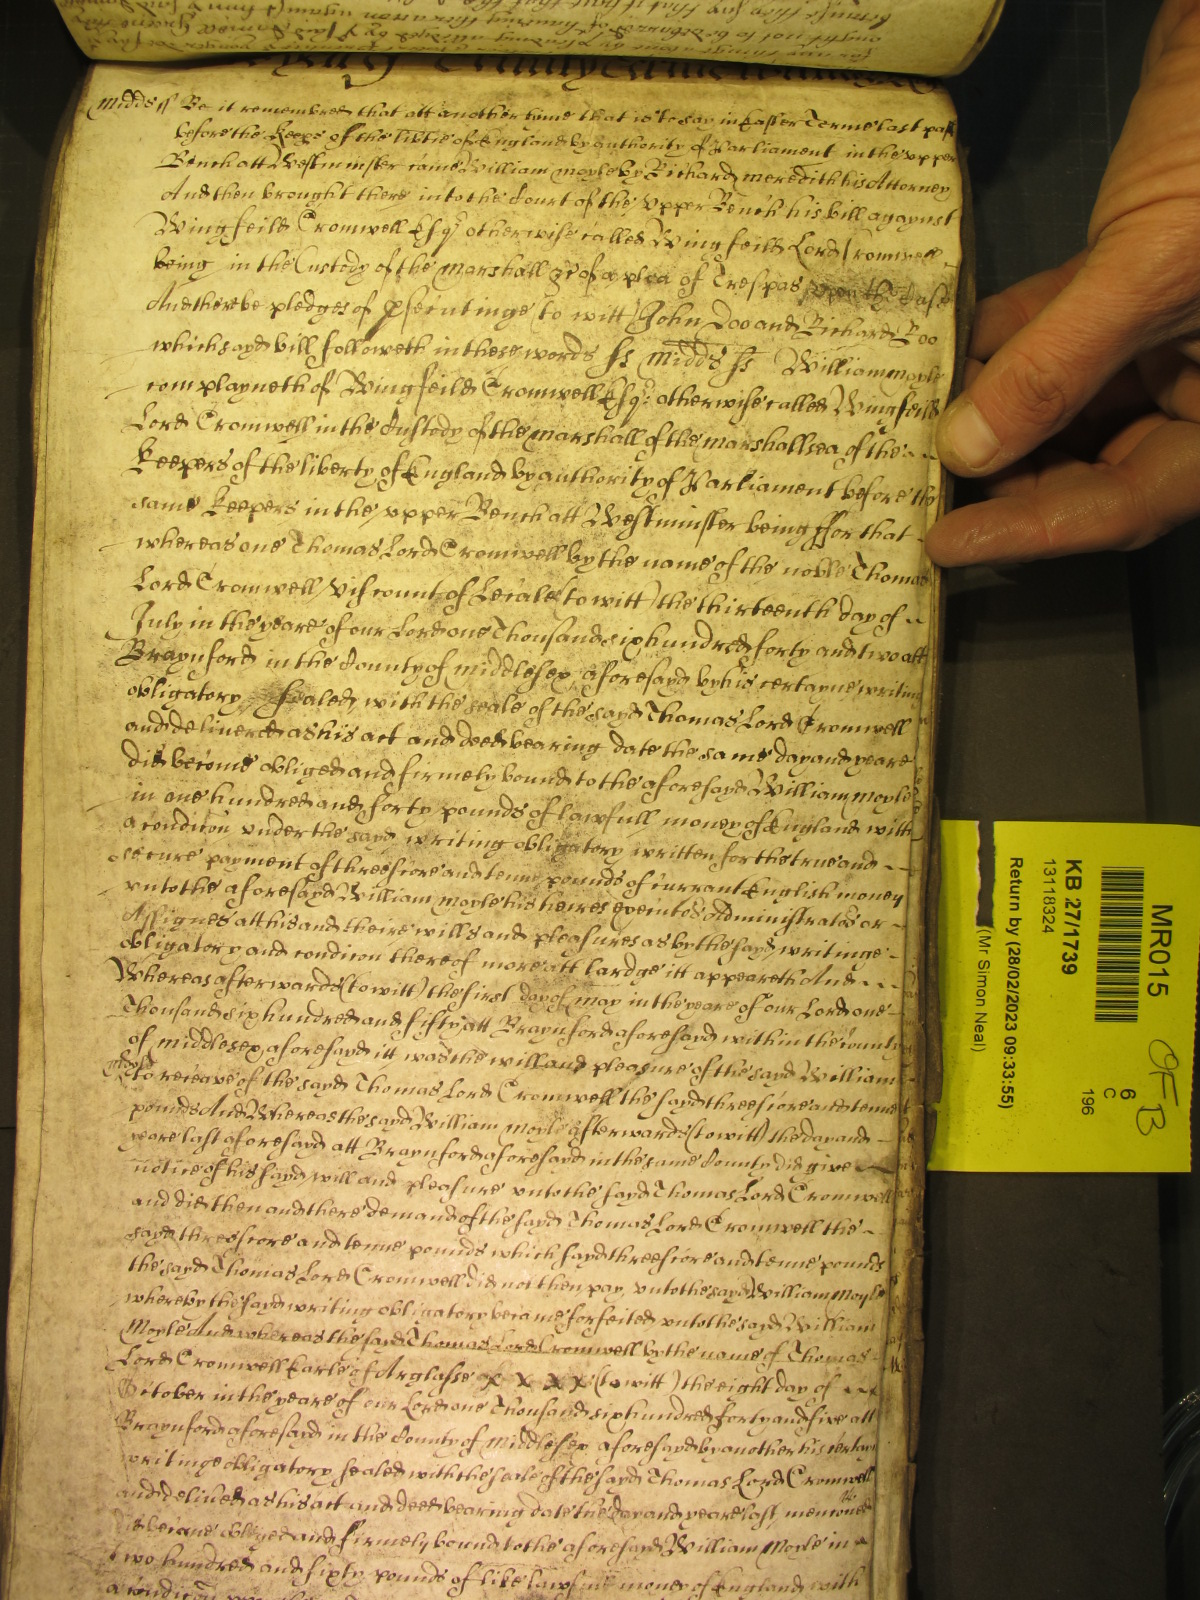 Midds ss Be it remembred that att another tyme that is to say in Easter Terme last past
before the Keeps of the libtie of England by authority of Parliament in the upper
Bench att Westminster came William Moyle by Richard Meredith his Attorney
And then brought there into the Court of the upper Bench his bill agaynst
Wingfeild Cromwell Esqr otherwise called Wingfeild Lord Cromwell
being in the Custody of the Marshall &c of a plea of Trespas upon the Case
And there be pledges of psecutinge (to witt) John Doo and Richard Roo
which sayd bill followeth in these words ss Midds ss William Moyle
complayneth of Wingfeild Cromwell Esqr otherwise called Wingfeild
Lord Cromwell in the Custody of the Marshall of the Marshallsea of the
Keepers of the liberty of England by authority of Parliament before the
same Keepers in the upper Bench att Westminster being ffor that
whereas one Thomas Lord Cromwell by the name of the noble Thomas
Lord Cromwell viscount of Lecale (to witt) the thirteenth day of
July in the yeare of our Lord one Thousand six hundred forty and two att
Braynford in the County of Middlesex aforesayd by his certayne writing
obligatory sealed with the seale of the sayd Thomas Lord Cromwell
and delivered as his act and deed bearing date the same day and yeare
did become obliged and firmely bound to the aforesayd William Moyle
in one hundred and forty pounds of lawfull money of England with
a condicon under the sayd writing obligatory written for the true and
secure payment of threescore and tenn pounds of currant English money
unto the aforesayd William Moyle his heires executos Administratos or
Assignes att his and theire wills and pleasures as by the sayd writinge
obligatory and condicon thereof more att lardge itt appeareth And
Whereas afterwards (to witt) the first day of May in the yeare of our Lord one
Thousand six hundred and fifty att Braynford aforesayd within the County
of Middlesex aforesayd itt was the will and pleasure of the sayd William
Moyle to receave of the sayd Thomas Lord Cromwell the sayd threescore and tenne
pounds And Whereas the sayd William Moyle afterwards (to witt) the day and
yeare last aforesayd att Braynford aforesayd in the same County did give
notice of his sayd will and pleasure unto the sayd Thomas Lord Cromwell
and did then and there demand of the sayd Thomas Lord Cromwell the
sayd threescore and tenne pounds which sayd threescore and tenne pounds
the sayd Thomas Lord Cromwell did not then pay unto the sayd William Moyle
whereby the sayd writing obligatory became forfeited unto the sayd William
Moyle And whereas the sayd Thomas Lord Cromwell by the name of Thomas
Lord Cromwell Earle of Arglasse x x x x (to witt) the eight day of
October in the yeare of our Lord one Thousand six hundred forty and five att
Braynford aforesayd in the County of Middlesex aforesayd by another his certayn
writinge obligatory sealed with the seale of the sayd Thomas Lord Cromwell
and delived as his act and deed bearing date the day and yeare last mentioned
did become obliged and firmely bound to the aforesayd William Moyle in
two hundred and sixty pounds of like lawfull money of England with
a condicon
MR015
KB 27/1739
13118324
Return by (28/02/2023 09:33:55)
(Mr Simon Neal)
6
C
196
OF B